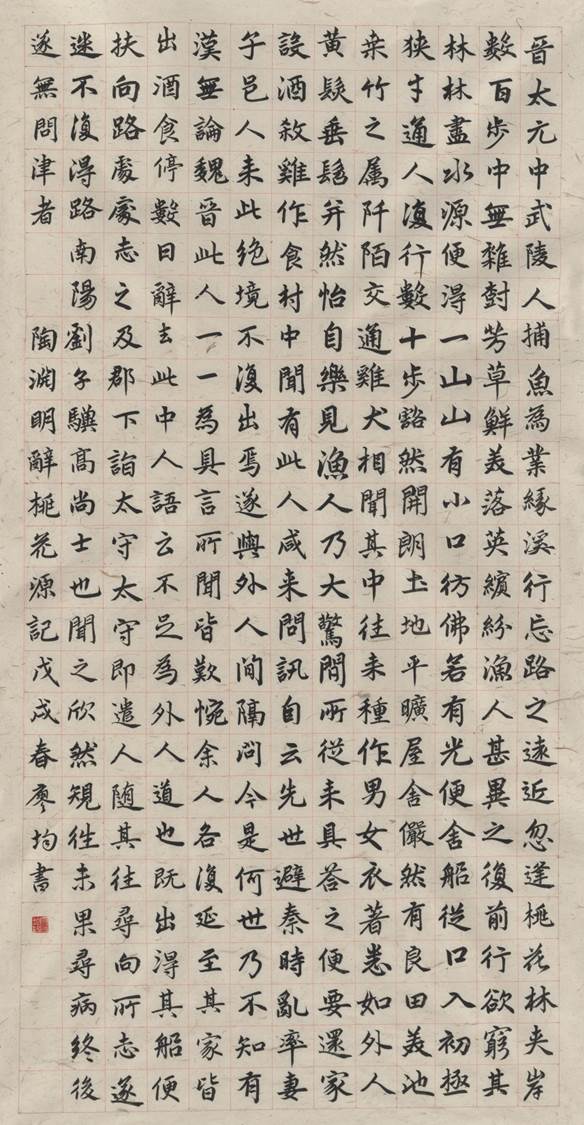 晋太元中武陵人捕魚為業緣溪行忘路之遠近忽逢桃花林夾岸
數百步中無雜尌芳草鮮美落英繽紛漁人甚異之復前行欲窮其
林林盡水源便得一山山有小口彷佛若有光便舍船從口入初極
狹才通人復行數十步豁然開朗土地平曠屋舍儼然有良田美池
桒竹之属阡陌交通雞犬相聞其中往来種作男女衣著悉如外人
黄髮垂髫并然怡自樂見漁人乃大驚問所從来具荅之便要還家
設酒殺雞作食村中聞有此人咸来問訊自云先世避秦時亂率妻
子邑人来此绝境不復出焉遂與外人間隔问今是何世乃不知有
漢無論魏晋此人一一為具言所聞皆歎惋余人各復延至其家皆
出酒食停數日辭去此中人語云不足為外人道也既出得其船便
扶向路處處志之及郡下詣太守太守即遣人随其往尋向所志遂
迷不復得路南陽劉子驥髙尚士也聞之欣然規往未果尋病終後
遂無問津者 陶淵明辭桃花源記戊戌春廖均書